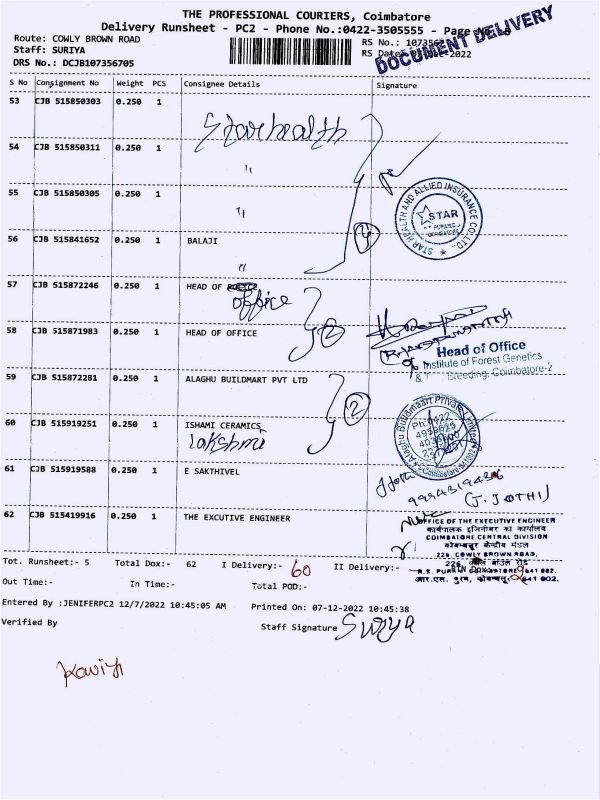 THE PROFESSIONAL COURIERS, Coimbatore
Delivery Runsheet - PC2 - Phone No.:0422-3505555 - Page
DOCUMENT DELIVERY
Route: COWLY BROWN ROAD
RS No.:
Staff: SURIYA
RS Date:
DRS No.: DCJB107356705
S No Consignment No Weight PCS Consignee Details Signature
53 CJB 515850303 0.250 1 Starhealth
54 CJB 515850311 0.250 1 "
55 CJB 515850305 0.250 1 "
STAR HEALTH AND ALLIED INSURANCE CO. LTD.
STAR
56 CJB 515841652 0.250 1 BALAJI
"
57 CJB 515872246 0.250 1 HEAD OF
office
58 CJB 515871983 0.250 1 HEAD OF OFFICE
2
Head of Office
Institute of Forest Genetics
& Breeding, Coimbatore-2
59 CJB 515872281 0.250 1 ALAGHU BUILDMART PVT LTD
2
Alaghu Buildmaart Private Limited
Ph:0422
60 CJB 515919251 0.250 1 ISHAMI CERAMICS
Lakshmi
61 CJB 515919588 0.250 1 E SAKTHIVEL
(J. JOTHI)
62 CJB 515419916 0.250 1 THE EXCUTIVE ENGINEER
OFFICE OF THE EXECUTIVE ENGINEER
कार्यपालक इंजिनीयर का कार्यालय
COIMBATORE CENTRAL DIVISION
कोयम्बत्तूर केन्द्रीय मंडल
226, COWLY BROWN ROAD,
641 002.
Tot. Runsheet:- 5 Total Dox:- 62 I Delivery:- 60 II Delivery:-
Out Time:- In Time:- Total POD:-
Entered By :JENIFERPC2 12/7/2022 10:45:05 AM Printed On: 07-12-2022 10:45:38
Verified By Staff Signature Suriya